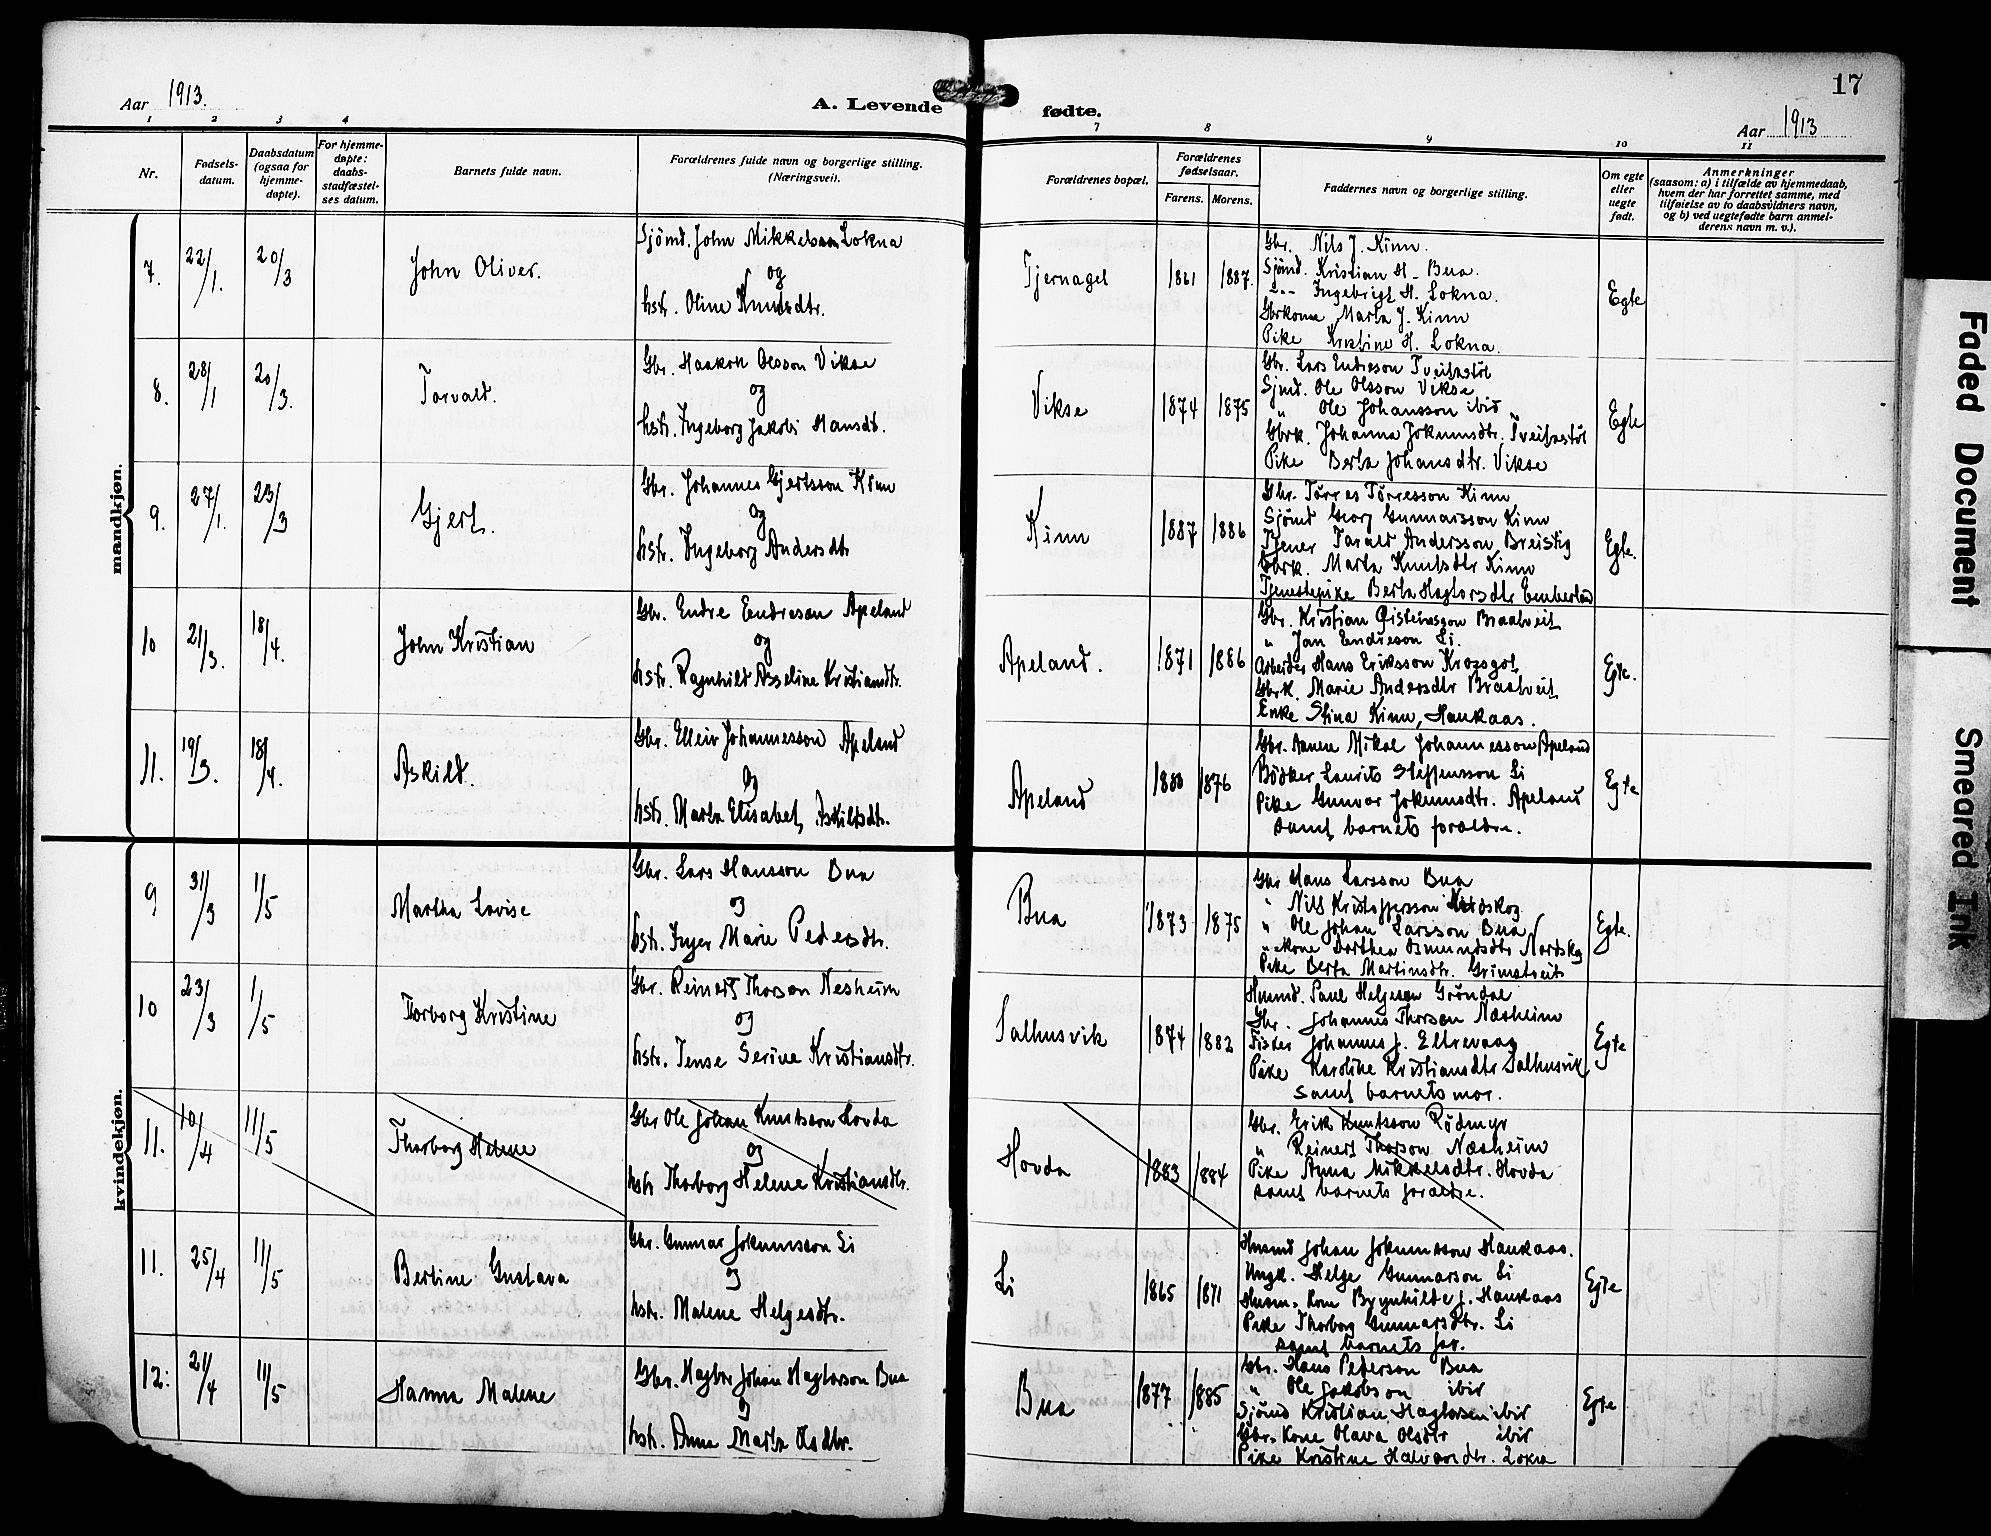 17
Aar 1913.
A. Levende
fødte.
Aar 1913
1 2 3 4
7 8 9 10 11
Nr.
Fødsels-
datum.
Daabsdatum
(ogsaa for
hjemme-
døpte).
For hjemme-
døpte:
daabs-
stadfæstel-
ses datum.
Barnets fulde navn.
Forældrenes fulde navn og borgerlige stilling.
(Næringsvei).
Forældrenes bopæl.
Forældrenes
fødselsaar.
Farens. Morens.
Faddernes navn og borgerlige stilling.
Om egte
eller
uegte
født.
Anmerkninger
(saasom: a) i tilfælde av hjemmedaab,
hvem der har forrettet samme, med
tilføielse av to daabsvidners navn,
og b) ved uegtefødte barn anmel-
derens navn m. v.).
mandkjøn.
7. 22/1. 20/3 John Oliver.
Sjömd. John Mikkelsson Lokna
og
hstr. Oline Knutsdtr.
Tjernagel 1861 1887.
Gbr. Nils J. Kinn.
Sjömd. Kristian H. Bua.
Ingebrigt H. Lokna.
Gbrkone Marta J. Kinn
Pike Kristine H. Lokna.
Egte
8. 28/1 20/3. Torvald.
Gbr. Haakon Olsson Vikse
og
hstr. Ingeborg Jakobi Hansdt.
Vikse 1874 1875
Gbr. Lars Endreson Tveitastøl
Sjmd. Ole Olsson Vikse
" Ole Johansson ibid
Gbrk. Johanna Jokumsdtr. Tveitastøl
Pike Berta Johansdtr. Vikse
Egte
9. 27/1. 23/3 Gjert.
Gbr. Johannes Gjertsson Kinn
og
hstr. Ingeborg Andersdtr
Kinn 1887 1886
Gbr. Tørres Tørresson Kinn
Sjömd Georg Gunnarsson Kinn
Tjener Tarald Andersson Breistig
Gbrk. Marta Knutsdtr Kinn
Tjenestepike Berta Hagtorsdtr Emberland
Egte.
10 21/3. 18/4. John Kristian
Gbr. Endre Endreson Apeland
og
hstr. Ragnhild Asseline Kristiansdtr.
Apeland. 1871 1886
Gbr. Kristian Øisteinsson Braatveit
" Jan Endreson Li.
Arbeider Hans Eriksson
Gbrk. Marie Andersdtr Braatveit
Enke Stina Kinn, Haukaas.
Egte.
11. 19/3. 18/4. Askild.
Gbr. Elleir Johannesson Apeland
og
hstr. Marta Elisabet Askildsdtr.
Apeland 1880 1876
Gbr. Mikal Johannesson Apeland
Bödker Laurits Steffensson Li
Pike Gunvor Jokumsdtr. Apeland
samt barnets foræld
Egte
kvindekjøn.
9 31/3 1/5 Martha Lovise
Gbr. Lars Hansson Bua
og
hstr. Inger Marie Pedersdtr.
Bua 1873 1875
Gbr Hans Larsson Bua
" Nils Kristoffersson
" Ole Johan Larsson Bua
" kone Dorthea Osmundsdtr Nordskog
Pike Berta Martinsdtr. Grimstveit
Egte.
10 23/3 1/5 Torborg Kristine
Gbr. Reinert Thorson Nesheim
og
hstr. Jense Serine Kristiansdtr.
Salhusvik 1874 1882
Husmd. Paul Helgeson Gröndal
Gbr. Johannes Thorson Næsheim
Fisker Johannes J. Eltrevaag
Pike Karoline Kristiansdtr Salhusvik
samt barnets mor.
Egte
11. 10/4 11/5 Thorborg Helene
Gbr Ole Johan Knutsson Hovda
og
hstr Thorborg Helene Kristiansdtr.
Hovda 1883 1884
Gbr. Erik Knutsson Rödmyr
" Reinert Thorson Næsheim
Pike Anna Mikkelsdtr. Hovda
samt barnets forældre.
11. 25/4 11/5 Bertine Gustava
Gbr. Gunnar Jokumsson Li
og
hstr. Malene Helgesdtr.
Li 1865 1871
Husmd Johan Jokumsson Haukaas.
Ungk. Helge Gunnarson Li
Husm. kone Brynhilde J. Haukaas
Pike Thorborg Gunnarsdtr. Li
samt barnets far.
Egte
12. 21/4 11/5 Hanna Malene
Gbr. Hagbor Johan Hagtorson Bua
og
hstr. Anna Marta
Bua 1877 1885
Gbr. Hans Pederson Bua
" Ole Jakobson ibid
Sjömd Kristian Hagtorsen ibid
Gbr. Kone Olava Olsdtr ibid
Pike Kristine Halvorsdtr. Lokna
Egte
Faded Document
Smeared Ink